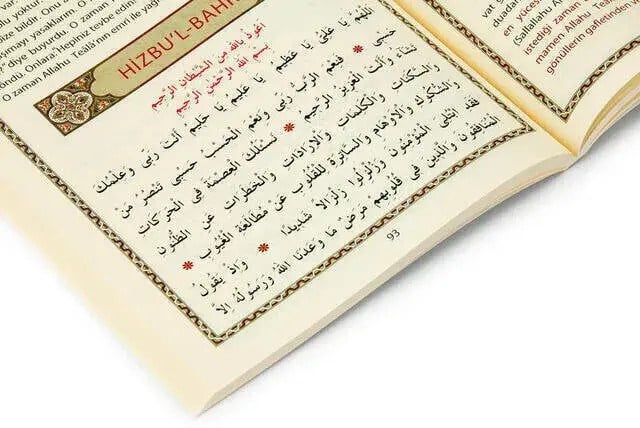 bildir.
yasakların. O zaman
diye buyurdu. O zaman
Onlara: Hepiniz tevbe
O zaman Allahu Teâlâ'nın emri ile
HİZBU'L-BAHR
اَعُوذُ بِاللّٰهِ مِنَ الشَّيْطَانِ الرَّجِيمِ
بِسْمِ اللّٰهِ الرَّحْمٰنِ الرَّحِيمِ
اَللّٰهُمَّ يَا عَلِىُّ يَا عَظِيمُ يَا عَلِيمُ يَا حَلِيمُ اَنْتَ رَبِّى وَعِلْمُكَ
حَسْبِى ❋ فَنِعْمَ الرَّبُّ رَبِّى وَنِعْمَ الْحَسْبُ حَسْبِى تَنْصُرُ مَنْ
تَشَاءُ وَاَنْتَ الْعَزِيزُ الرَّحِيمُ ❋ نَسْئَلُكَ الْعِصْمَةَ فِى الْحَرَكَاتِ
وَالسَّكَنَاتِ وَالْكَلِمَاتِ وَالْاِرَادَاتِ وَالْخَطَرَاتِ عَنِ الظُّنُونِ
وَالشُّكُوكِ وَالْاَوْهَامِ وَالسَّاتِرَةِ لِلْقُلُوبِ عَنْ مُطَالَعَةِ الْغُيُوبِ ❋
فَقَدِ ابْتُلِىَ الْمُؤْمِنُونَ وَزُلْزِلُوا زِلْزَالًا شَدِيدًا ❋ وَاِذْ يَقُولُ
الْمُنَافِقُونَ وَالَّذِينَ فِى قُلُوبِهِمْ مَرَضٌ مَا وَعَدَنَا اللّٰهُ وَرَسُولُهُ اِلَّا
93
var
en
(Sallallahu
istediği zaman
mamen Allahu
gönüllerin gafletinden